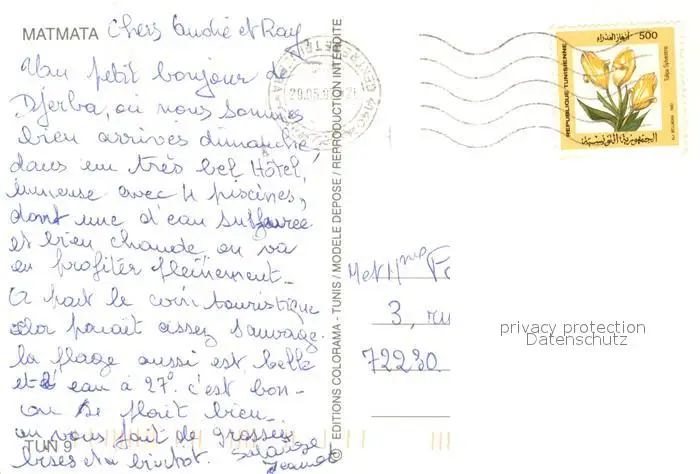 MATMATA
Chers André et Ray
Un petit bonjour de
Djerba, où nous sommes
bien arrivés dimanche
dans un très bel Hôtel,
immense avec 4 piscines,
dont une d'eau
et bien chaude, on va
en profiter pleinement_
A part le coin touristique
paraît assez sauvage.
la plage aussi est belle
et l'eau à 27° c'est bon_
on se plait bien_
on vous fait de grosses
bises et a bientot.
Jeannot
TUN 9
© EDITIONS COLORAMA - TUNIS / MODELE DEPOSE / REPRODUCTION INTERDITE
29.05.9
500
REPUBLIQUE TUNISIENNE
Tulipa Sylvestris
الجمهورية التونسية
M et Mme
3, ru
72230
privacy protection
Datenschutz